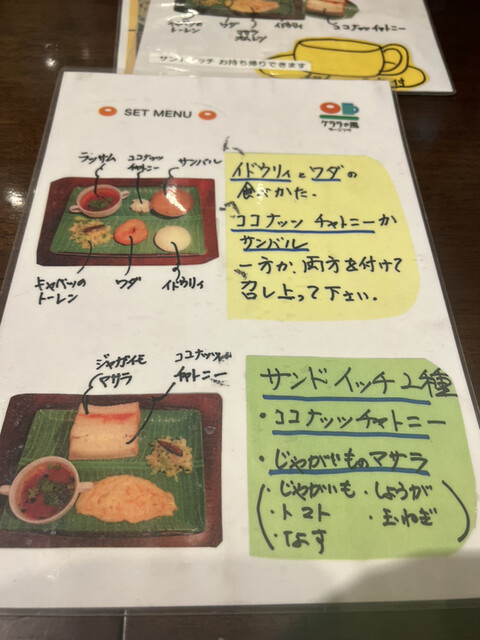 トーレン
ワダ
イドウリィ
ココナッツ チャトニー
サンドイッチ お持ち帰りできます
SET MENU
クララの風
ラッサム
ココナッツ
チャトニー
サンバル
キャベツの
トーレン
ワダ
イドウリィ
イドウリィとワダの
食べかた.
ココナッツ チャトニーか
サンバル
一方か、両方を付けて
召し上って下さい.
ジャガイモ
マサラ
ココナッツ
チャトニー
サンドイッチ2種
・ココナッツチャトニー
・じゃがいものマサラ
(・じゃがいも ・しょうが
・トマト ・玉ねぎ)
・なす